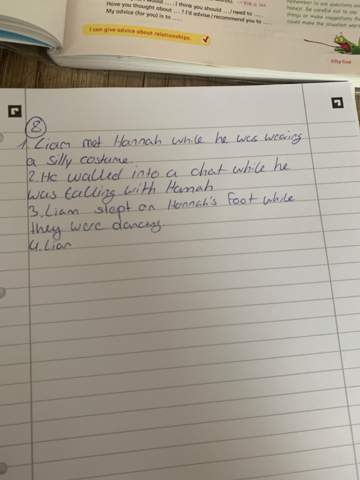 I think you should ... / I need to ....
Have you thought about ... ? I'd advise / recommend you to ....
My advice (for you) is to ....
I can give advice about relationships.
fifty-five
8
1. Liam met Hannah while he was wearing
a silly costume.
2. He walked into a chat while he
was talling with Hannah
3. Liam stept on Hannah's foot while
they were dancing.
4. Liam